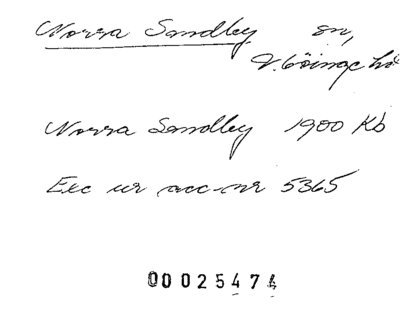 Norra Sandby sn,
V. Göinge hd
Norra Sandby 1900 Kb
Exc ur acc-nr 5365
00025474